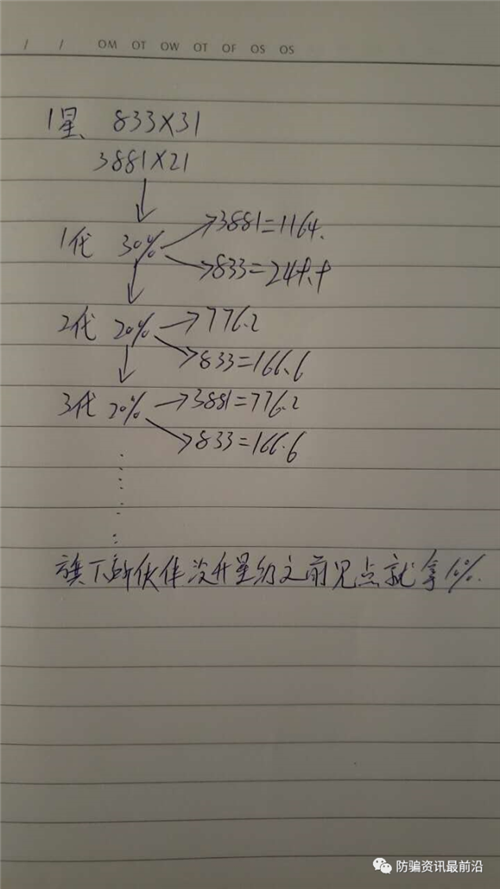 / / OM OT OW OT OF OS OS
1星 833×31
3881×21
1代 30% →3881=1164.
→833=24
2代 20% →776.2
→833=166.6
3代 20% →3881=776.2
→833=166.6
旗下所伙伴没升星级之前见点就拿10%.
防骗资讯最前沿